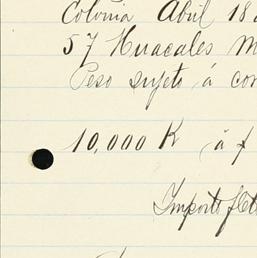 Colonia Abril 18
57 Huacales M
Peso sujeto á con
10,000 K á f
Importe flete